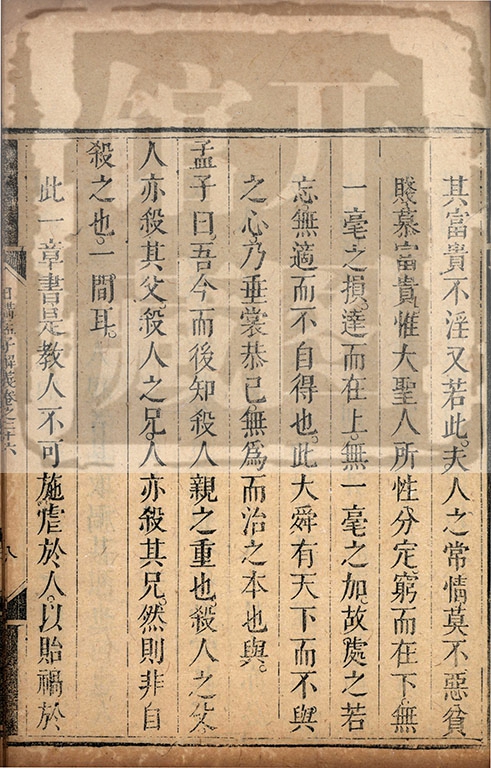 其富貴不淫又若此。夫人之常情莫不惡貧
賤慕富貴惟大聖人所性分定窮而在下無
一毫之損。達而在上。無一毫之加。故處之若
忘。無適而不自得也。此大舜有天下而不與
之心。乃垂裳恭己無爲而治之本也與。
孟子曰。吾今而後知殺人親之重也。殺人之父。
人亦殺其父。殺人之兄。人亦殺其兄。然則非自
殺之也。一間耳。
此一章書是教人不可施虐於人。以貽禍於
日講孟子解義卷之二十六
八